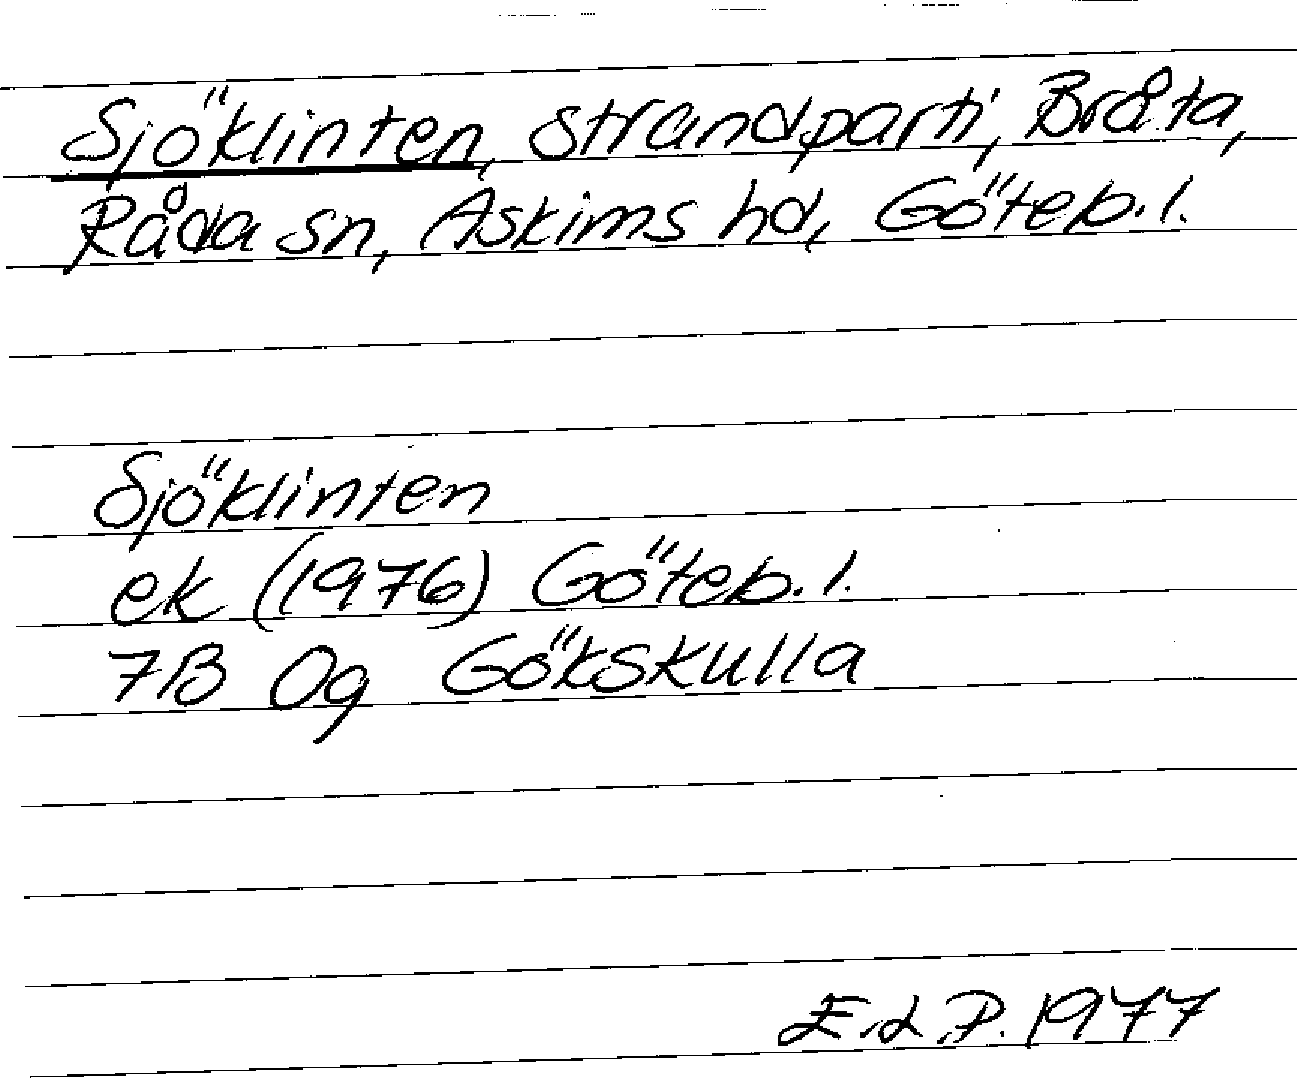 Sjöklinten, strandparti, Bråta,
Råda sn, Askims hd, Göteb. l.
Sjöklinten
ek (1976) Göteb. l.
7B 0g Gökskulla
E.L.P. 1977